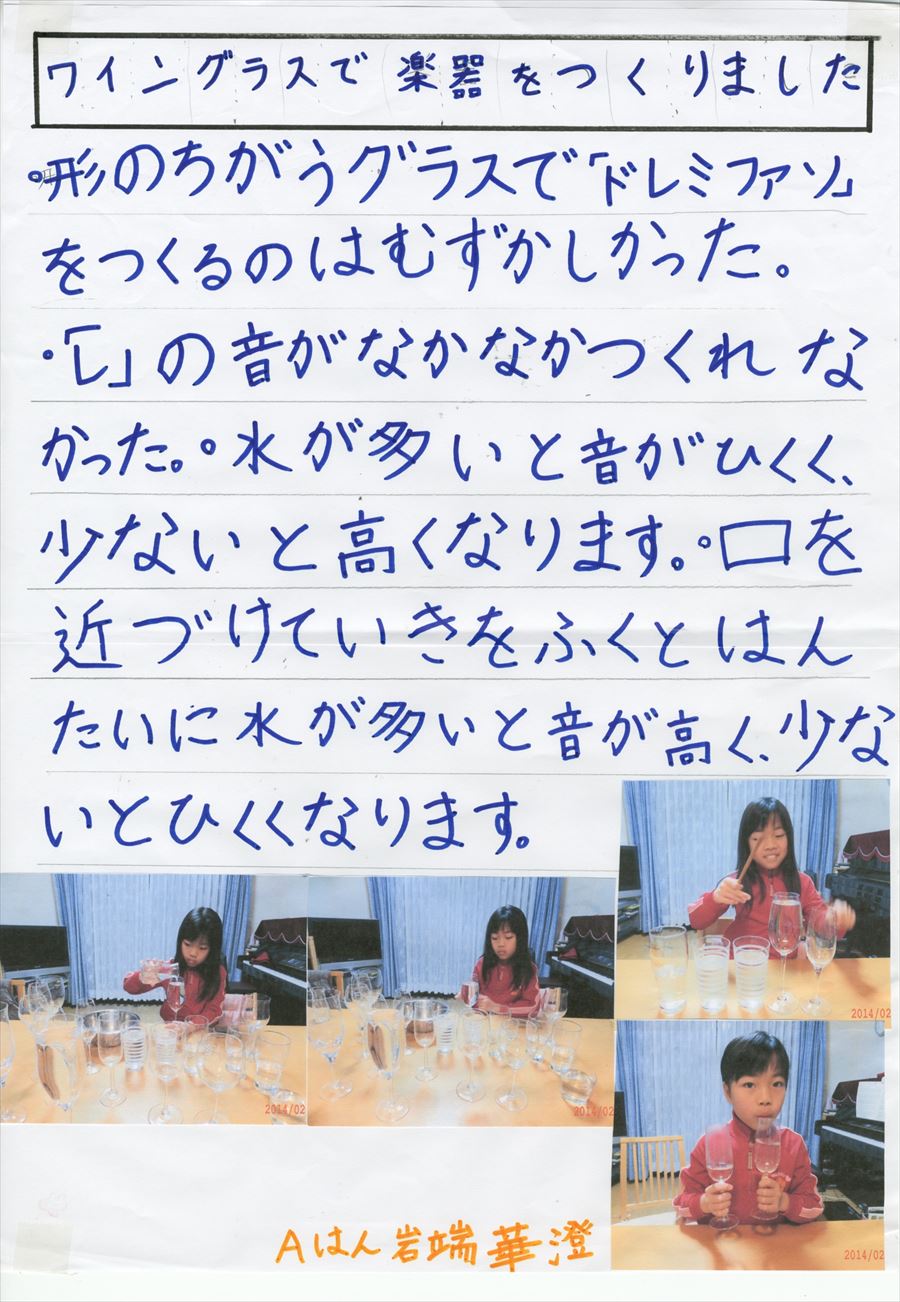 ワイングラスで楽器をつくりました
・形のちがうグラスで「ドレミファソ」
をつくるのはむずかしかった。
・「レ」の音がなかなかつくれな
かった。・水が多いと音がひくく、
少ないと高くなります。・口を
近づけていきをふくとはん
たいに水が多いと音が高く、少な
いとひくくなります。
2014/02
2014/02
2014/02
2014/02
Aはん岩端華澄